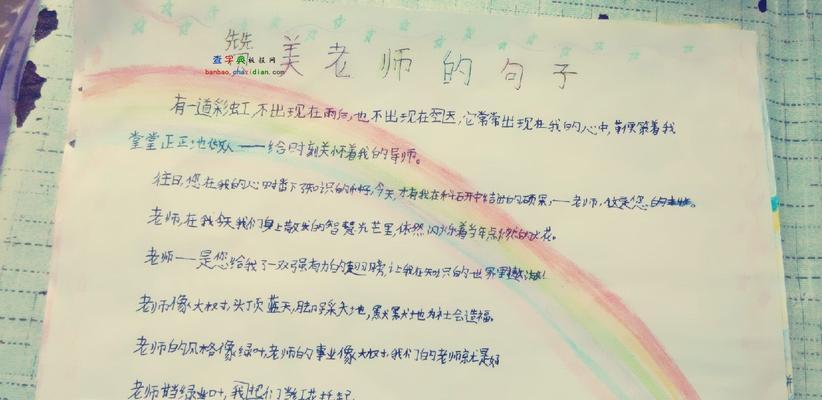 赞美老师的句子
查字典板报网
banbao.chazidian.com
有一道彩虹,不出现在雨后,也不出现在空,它常常出现在我的心中,鞭策着我
堂堂正正地做人——给时刻关怀着我的导师。
往日,您在我的心田播下知识的种,今天,才有我在科研中结出的硕果,——老师,这是您的
老师,在我今天我们身上散发的智慧光芒里,依然闪烁着当年点燃的火花。
老师——是您给我了一双强有力的翅膀,让我在知识的世界里遨游!
老师像大树,头顶蓝天,脚踩大地,默默地为社会造福。
老师的风格像绿叶,老师的事业像大树,我们的老师就是好
老师当绿叶,我们当红花